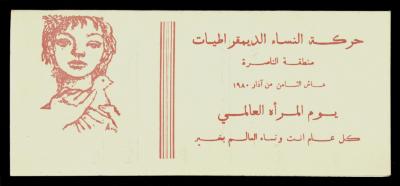 حركة النساء الديمقراطيات
منطقة الناصرة
عاش الثامن من آذار ١٩٨٠
يوم المرأة العالمي
كل عام انت ونساء العالم بخير